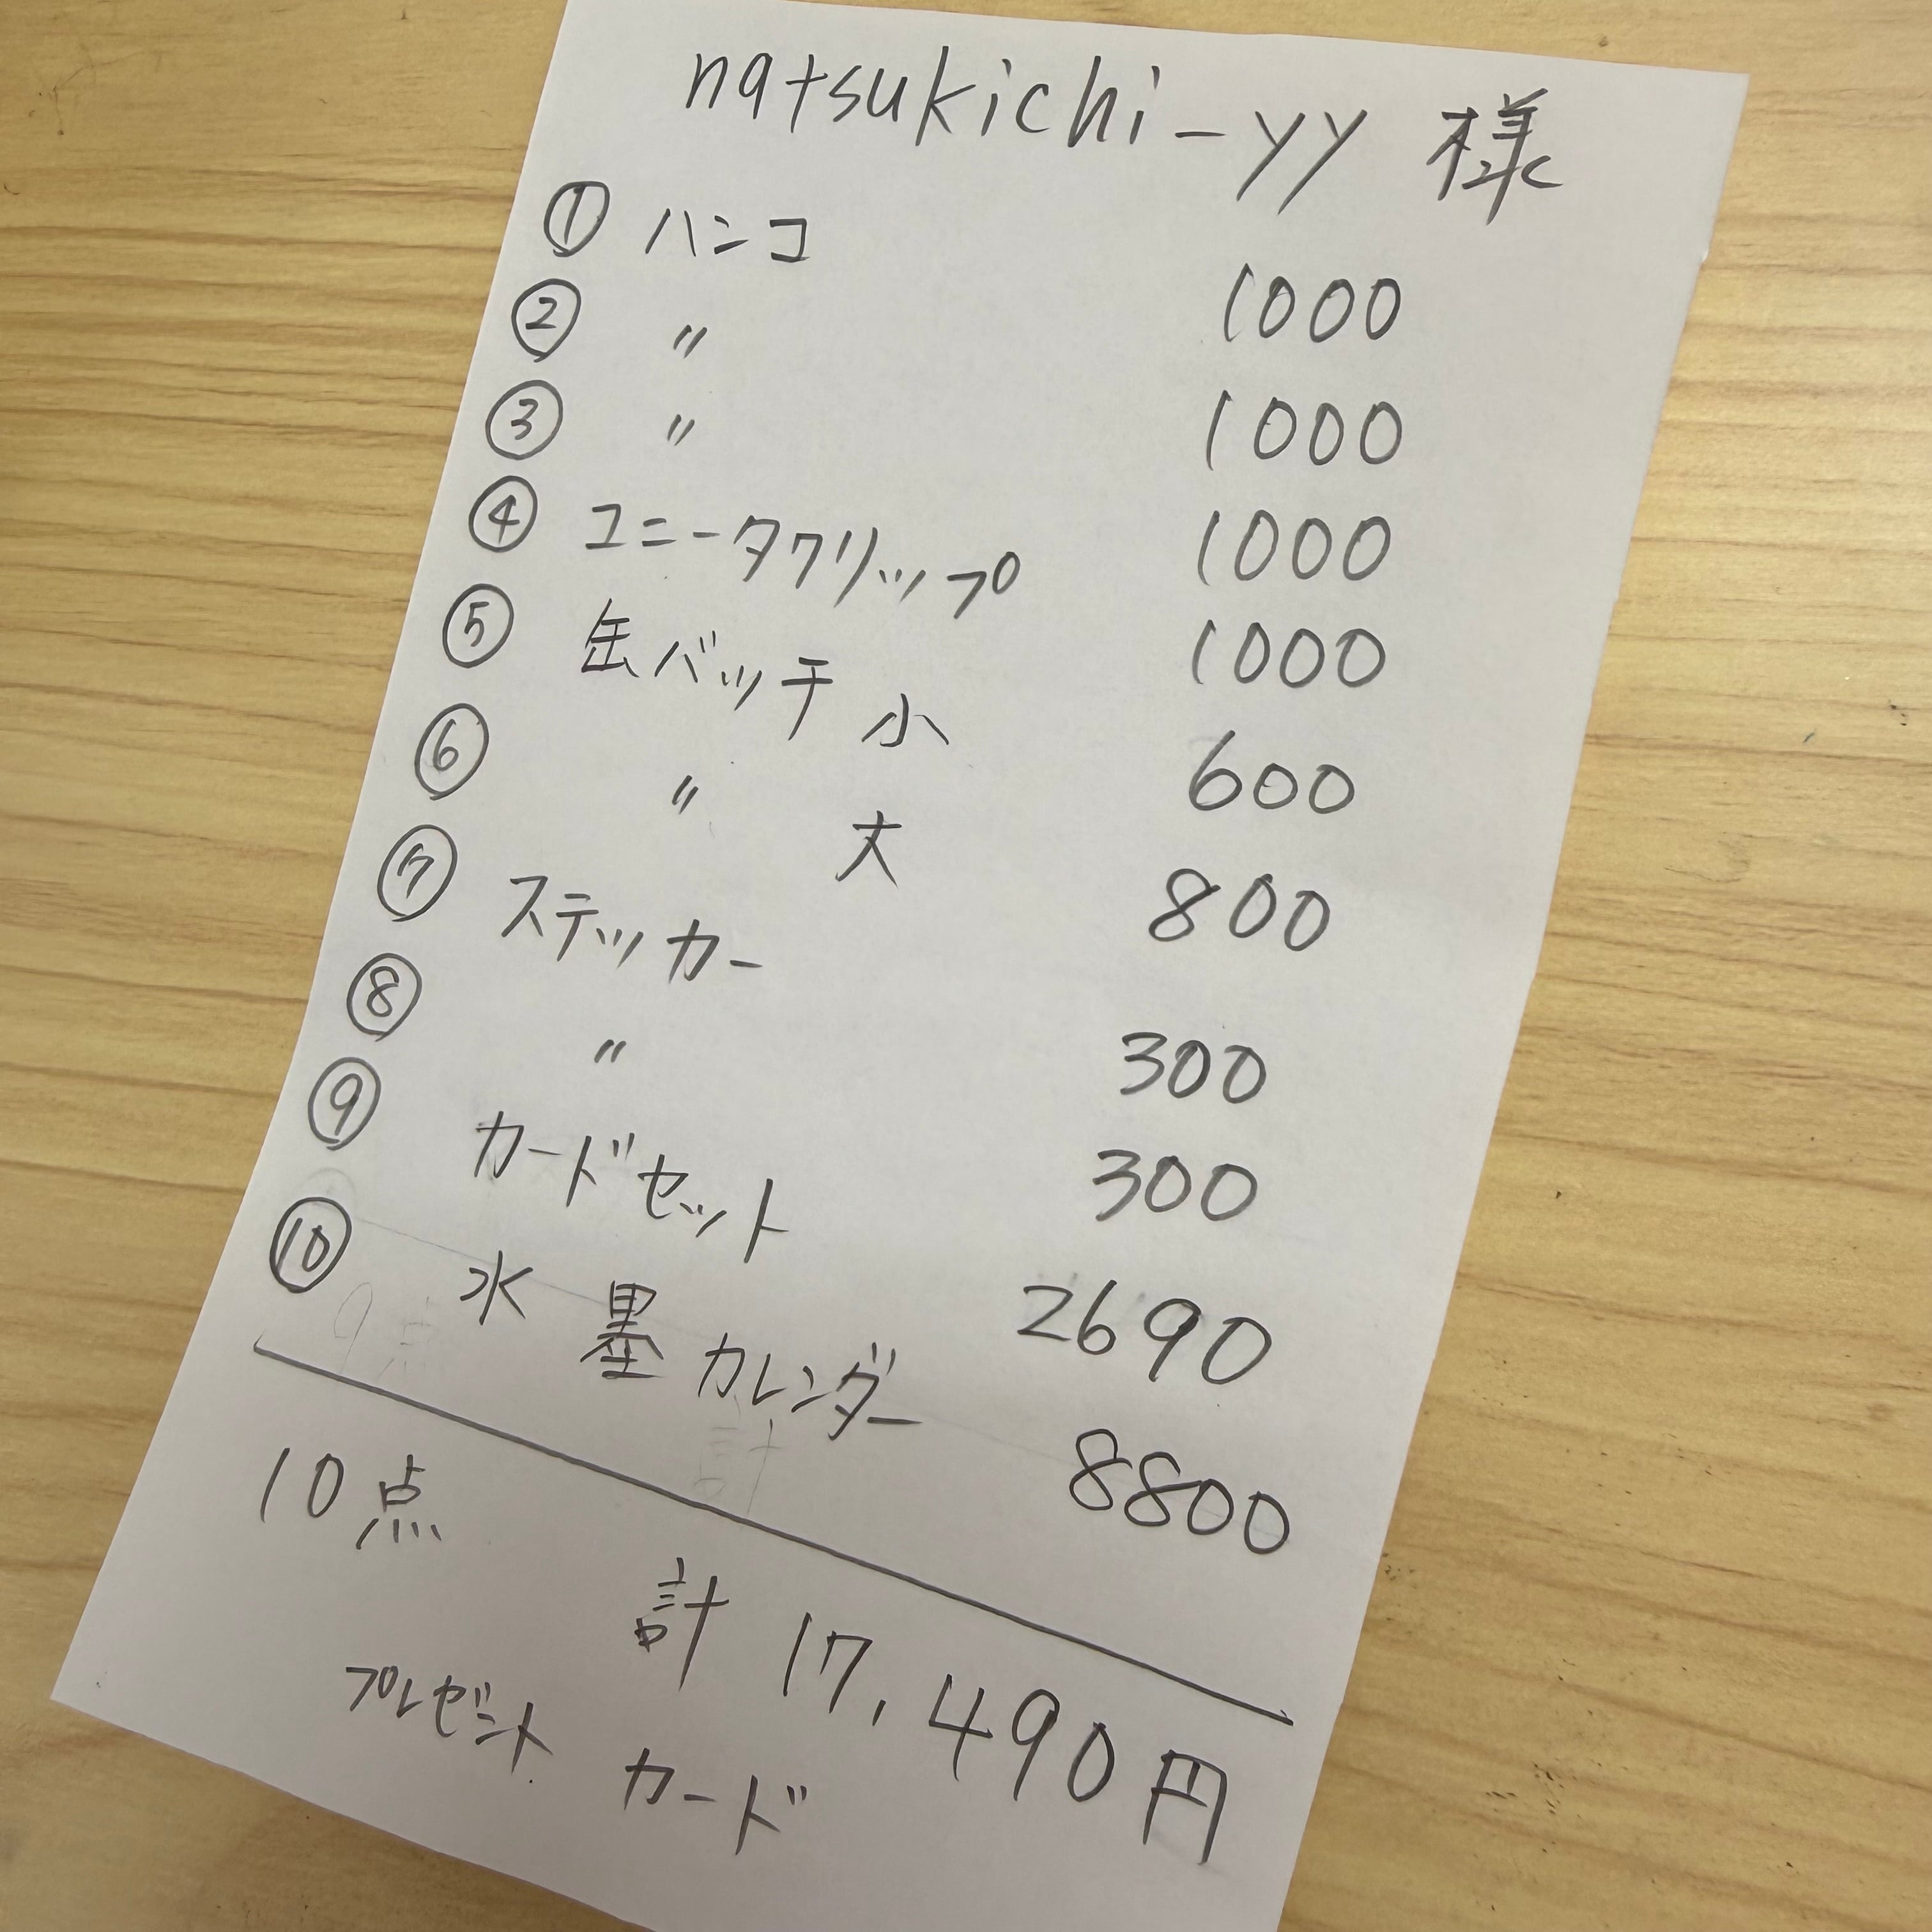 natsukichi_yy 様
① ハンコ 1000
② 〃 1000
③ 〃 1000
④ ユニータクリップ 1000
⑤ 缶バッチ 小 600
⑥ 〃 大 800
⑦ ステッカー 300
⑧ 〃 300
⑨ カードセット 2690
⑩ 水墨カレンダー 8800
10点
計 17,490円
プレゼント カード